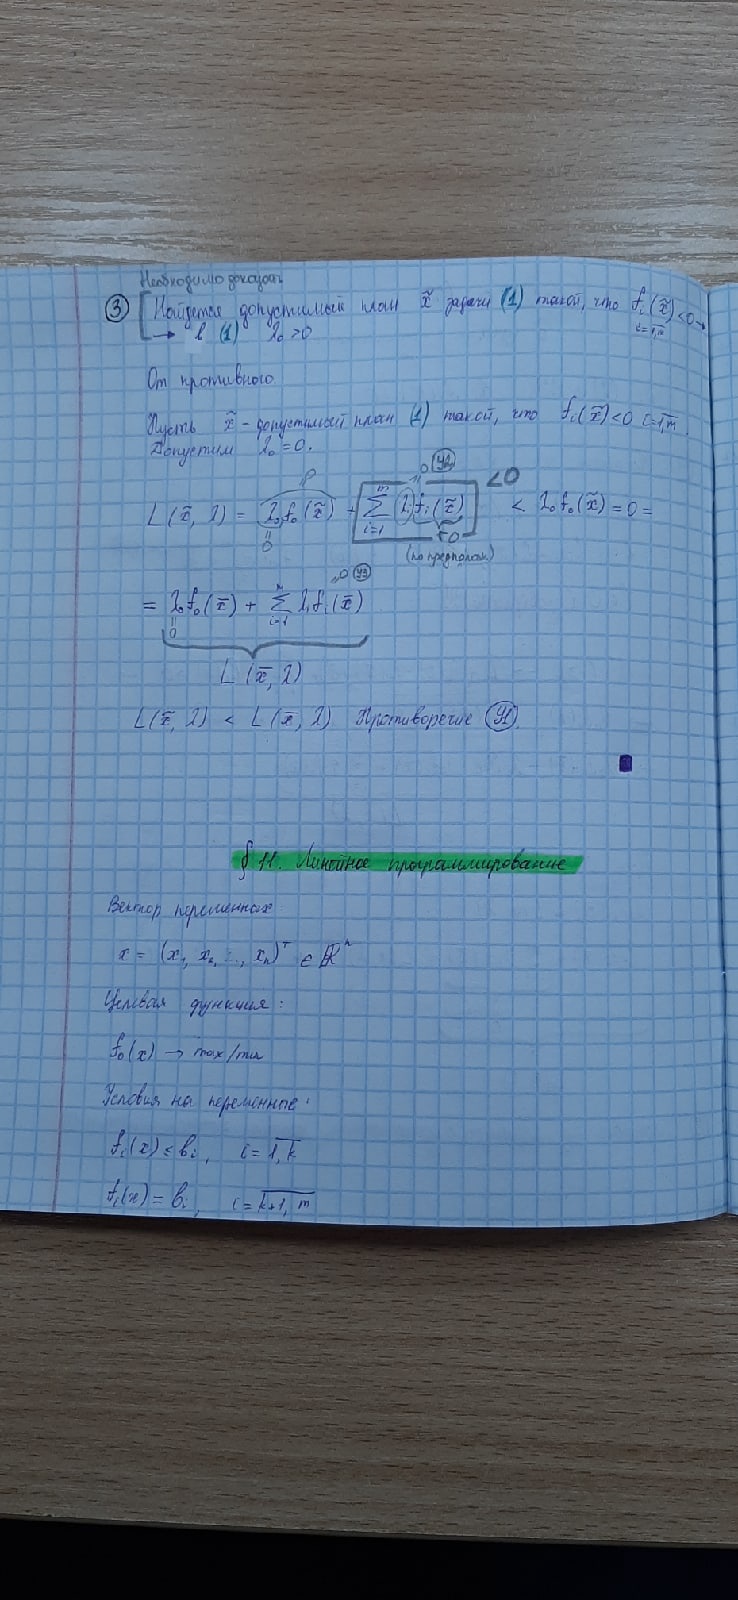 Необходимо доказать
③ Найдется допустимый план x̃ задачи (1) такой, что fᵢ(x̃) < 0 →
i = 1,m
→ в (1) λ₀ > 0
От противного
Пусть x̃ - допустимый план (1) такой, что fᵢ(x̃) < 0 i = 1,m.
Допустим λ₀ = 0.
L(x̃, λ) = λ₀f₀(x̃) + ∑ᵢ₌₁ᵐ λᵢfᵢ(x̃) < 0 < λ₀f₀(x̃) = 0 =
0
(по предполож.)
= λ₀f₀(x̄) + ∑ᵢ₌₁ᵐ λᵢfᵢ(x̄)
0
L(x̄, λ)
L(x̃, λ) < L(x̄, λ) Противоречие У1.
§ 11. Линейное программирование
Вектор переменных:
x = (x₁, x₂, ..., xₙ)ᵀ ∈ ℝⁿ
Целевая функция:
f₀(x) → max/min
Условия на переменные:
fᵢ(x) ≤ bᵢ, i = 1,k
fᵢ(x) = bᵢ, i = k+1, m